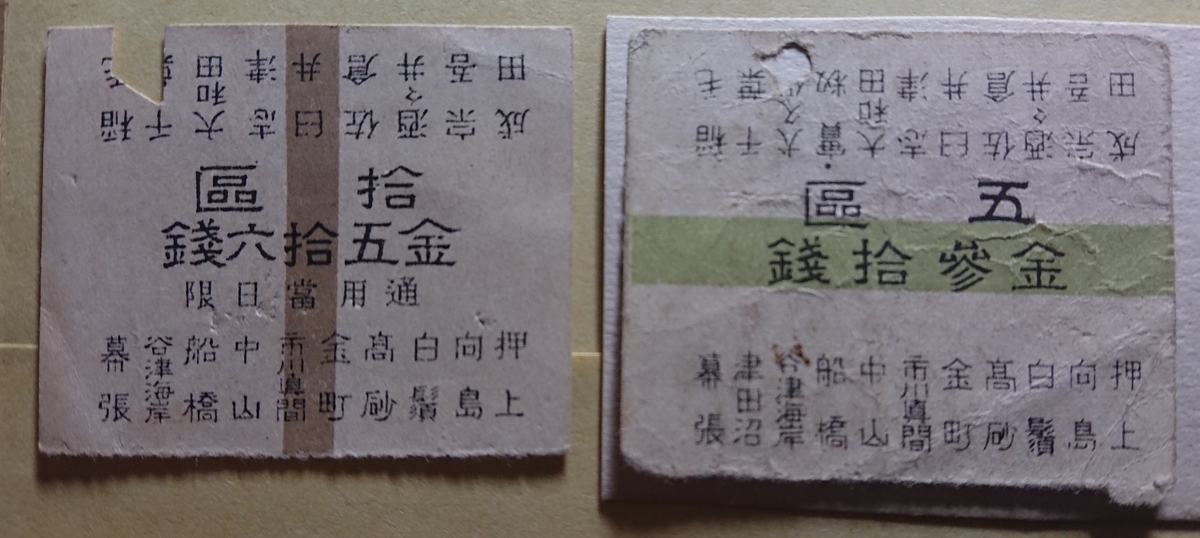 稲毛 千葉 大和田 志津 臼井 佐倉 酒々井 宗吾 成田
拾區
金五拾六錢
通用當日限
押上 向島 白鬚 髙砂 金町 市川眞間 中山 船橋 谷津海岸 幕張
稲毛 千葉 大久 實籾 大和田 志津 臼井 佐倉 酒々井 宗吾 成田
五區
金參拾錢
押上 向島 白鬚 髙砂 金町 市川眞間 中山 船橋 谷津海岸 津田沼 幕張